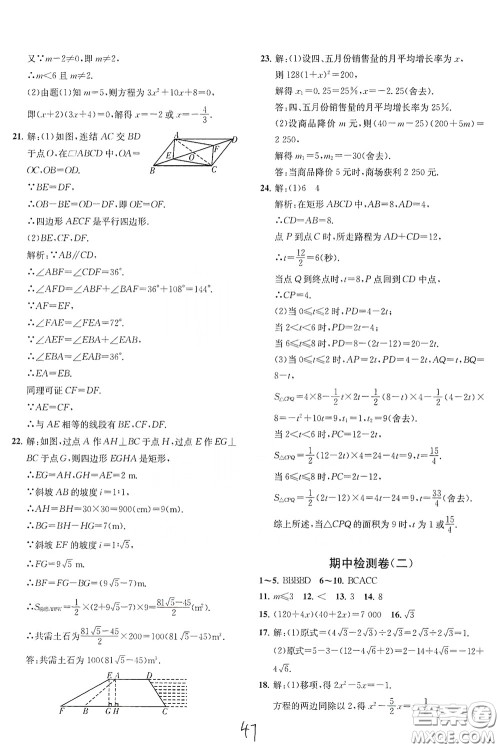 又∵m-2≠0,即 m≠2,
∴m<6 且 m≠2.
(2)由题(1)知 m=5,则方程为 3x²+10x+8=0,
即(x+2)(3x+4)=0,解得 x=-2 或 x=-4/3.
21. 解:(1)如图,连结 AC 交 BD
于点 O,在□ABCD 中,OA=
OC,OB=OD.
∵BE=DF,
∴OB-BE=OD-DF,即 OE=OF,
∴四边形 AECF 是平行四边形.
(2)BE,CF,DF.
解析:∵AB∥CD,
∴∠ABF=∠CDF=36°.
∴∠AFE=∠FAB+∠ABF=36°+108°=144°.
∵AF=EF,
∴∠FAE=∠FEA=72°.
∵∠AEF=∠EBA+∠EAB,
∴∠EBA=∠EAB=36°.
∴EA=EB.
同理可证 CF=DF.
∵AE=CF,
∴与 AE 相等的线段有 BE,CF,DF.
22. 解:如图,过点 A 作 AH⊥BC 于点 H,过点 E 作 EG⊥
BC 于点 G,则四边形 EGHA 是矩形,
∴EG=AH,GH=AE=2 m.
∵斜坡 AB 的坡度 i=1:1,
∴AH=BH=30×30=900(cm)=9(m).
∴BG=BH-HG=7(m).
∵斜坡 EF 的坡度 i=1:√5,
∴FG=9√5 m.
∴BF=FG-BG=(9√5-7)m.
∴S梯形ABFE=1/2×(2+9√5-7)×9=(81√5-45)/2(m²).
∴共需土石为(81√5-45)/2×200=100(81√5-45)(m³).
答:共需土石为 100(81√5-45)m³.
E A D
F B G H C
23. 解:(1)设四、五月份销售量的月平均增长率为 x,
则 128(1+x)²=200,
解得 x₁=0.25=25%,x₂=-2.25(舍去).
答:四、五月份销售量的月平均增长率为 25%.
(2)设商品降价 m 元,则(40-m-25)(200+5m)=
2 250,
解得 m₁=5,m₂=-30(舍去).
答:当商品降价 5 元时,商场获利 2 250 元.
24. 解:(1)6 4
解析:在矩形 ABCD 中,AB=8,AD=4,
点 P 到点 C 时,所走路程为 AD+CD=12,
∴t=12/2=6(秒).
当点 Q 到终点时,P 点回到 CD 中点,
∴CP=4.
(2)当 0≤t≤2 时,PD=4-2t;
当 2<t≤6 时,PD=2t-4;
当 6<t≤8 时,PD=20-2t.
(3)当 0≤t≤2 时,AP=2t,PD=4-2t,AQ=t,BQ=
8-t,
S△CPQ=4×8-1/2 t×2t-1/2(8-t)×4-1/2(4-2t)×8
=-t²+10t=9,解得 t=1 或 t=9(舍去).
当 2≤t≤6 时,PC=12-2t,
S△CPQ=1/2(12-2t)×4=9,解得 t=15/4.
当 6≤t≤8 时,PC=2t-12,
S△CPQ=1/2(2t-12)×4=9,解得 t=33/4(舍去).
综上所述,当△CPQ 的面积为 9 时,t 为 1 或 15/4.
期中检测卷(二)
1~5. BBBBD 6~10. BCACC
11. m≤3 12. < 13. 3 14. 8
15. (120+4x)(40+2x)=7 000 16. √3
17. 解:(1)原式=(4√3-2√3+√3)÷√3=3√3÷√3=3.
(2)原式=(5√3+√3-2√3)×√2=4√3×√2
=4√6.
18. 解:(1)移项,得 2x²-5x=-1.
47